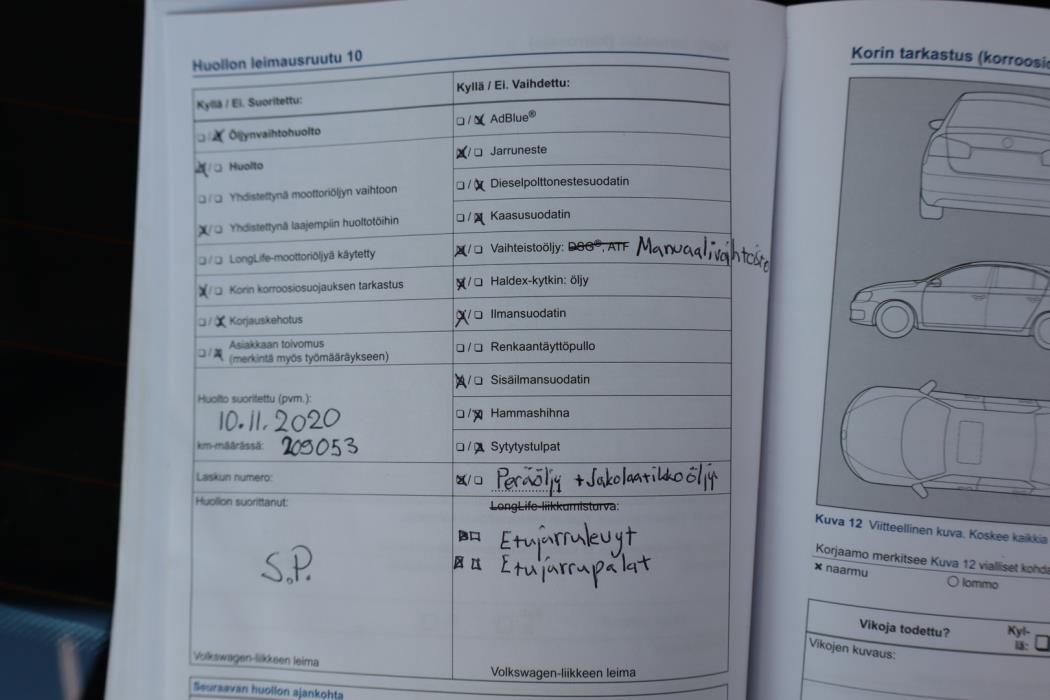 Huollon leimausruutu 10
Kyllä / Ei. Suoritettu:
☐/☒ Öljynvaihtohuolto
☒/☐ Huolto
☐/☐ Yhdistettynä moottoriöljyn vaihtoon
☒/☐ Yhdistettynä laajempiin huoltotöihin
☐/☐ LongLife-moottoriöljyä käytetty
☒/☐ Korin korroosiosuojauksen tarkastus
☐/☒ Korjauskehotus
☐/☒ Asiakkaan toivomus
(merkintä myös työmääräykseen)
Huolto suoritettu (pvm.):
10.11.2020
km-määrässä: 209053
Laskun numero:
Huollon suorittanut:
S.P.
Volkswagen-liikkeen leima
Seuraavan huollon ajankohta
Kyllä / Ei. Vaihdettu:
☐/☒ AdBlue®
☒/☐ Jarruneste
☐/☒ Dieselpolttonestesuodatin
☐/☒ Kaasusuodatin
☒/☐ Vaihteistoöljy: DSG®, ATF
☒/☐ Haldex-kytkin: öljy
☒/☐ Ilmansuodatin
☐/☐ Renkaantäyttöpullo
☒/☐ Sisäilmansuodatin
☐/☒ Hammashihna
☐/☒ Sytytystulpat
☒/☐ Peräöljy + Jakolaatikkoöljy
LongLife-liikkumisturva:
☒☐ Etujarrulevyt
☒☐ Etujarrupalat
Volkswagen-liikkeen leima
Korin tarkastus
Kuva 12 Viitteellinen kuva. Koskee kaikkia
Korjaamo merkitsee Kuva 12 vialliset
× naarmu
○ lommo
Vikoja todettu?
Kyl-
lä: ☐
Vikojen kuvaus: